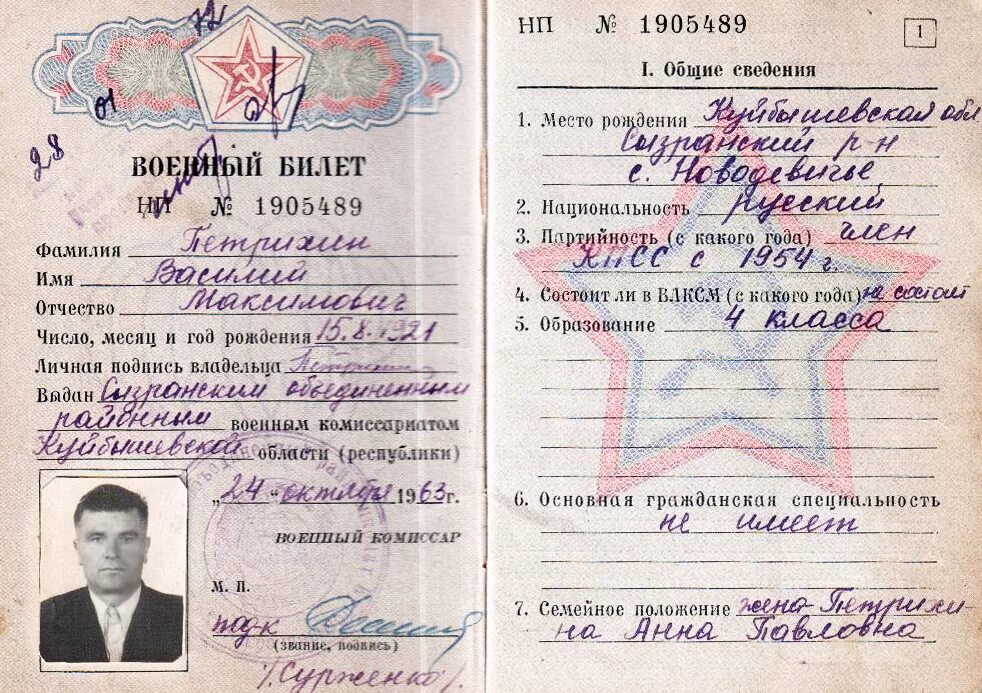 72
01
28
ВОЕННЫЙ БИЛЕТ
НП № 1905489
Фамилия Петрихин
Имя Василий
Отчество Максимович
Число, месяц и год рождения 15.8.1921
Личная подпись владельца
Выдан Сызранским объединенным
районным военным комиссариатом
Куйбышевской области (республики)
„24 “ октября 1963г.
ВОЕННЫЙ КОМИССАР
М. П.
подп-к
(звание, подпись)
/. Сурженко /.
НП № 1905489
1
I. Общие сведения
1. Место рождения Куйбышевская обл
Сызранский р-н
с. Новодевичье
2. Национальность русский
3. Партийность (с какого года) член
КПСС с 1954 г.
4. Состоит ли в ВЛКСМ (с какого года) не состоит
5. Образование 4 класса
6. Основная гражданская специальность
не имеет
7. Семейное положение жена-Петрихи-
на Анна Павловна